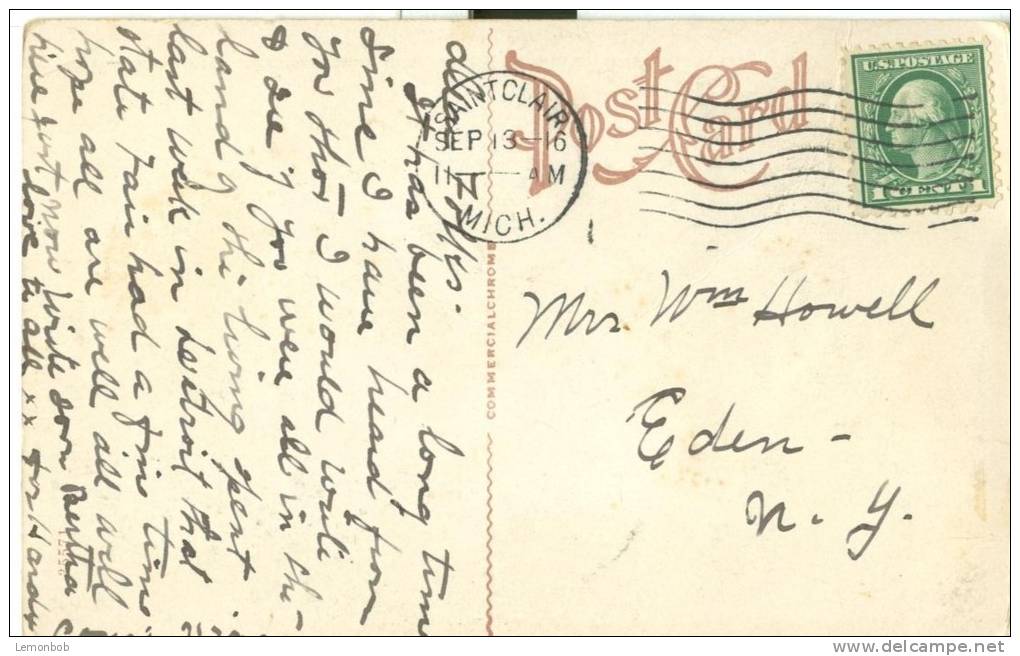 Post Card
SAINT CLAIR
SEP 13 - 16
11 - AM
MICH.
U.S. POSTAGE
1 CENT 1
COMMERCIALCHROME
Mrs Wm Howell
Eden -
N. Y.
dear
it has been a long time
sine I have heard from
you thot I would write
& see if you were all in the -
land of the living spent
last week in detroit that
state fair had a fine time
hope all are well all well
here just now write soon Bertha
love to all xx
Lemonbob
www.delcampe.net